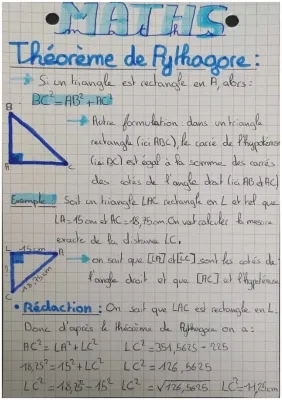 MATHS
Théorème de Pythagore :
Si un triangle est rectangle en A, alors :
BC² = AB² + AC²
B
A
C
Autre formulation : dans un triangle
rectangle (ici ABC), le carré de l'hypoténuse
(ici BC) est égal à la somme des carrés
des côtés de l'angle droit (ici AB et AC)
Exemple Soit un triangle LAC rectangle en L et tel que
LA = 15 cm et AC = 18,75 cm. On veut calculer la mesure
exacte de la distance LC.
L
15cm
A
?
18,75cm
C
on sait que [LA] et [LC] sont les côtés de
l'angle droit et que [AC] et l'hypoténuse
• Rédaction : On sait que LAC est rectangle en L.
Donc d'après le théorème de Pythagore on a :
AC² = LA² + LC² LC² = 351,5625 - 225
18,75² = 15² + LC² LC² = 126,5625
LC² = 18,75² - 15² LC = √126,5625 LC = 11,25cm